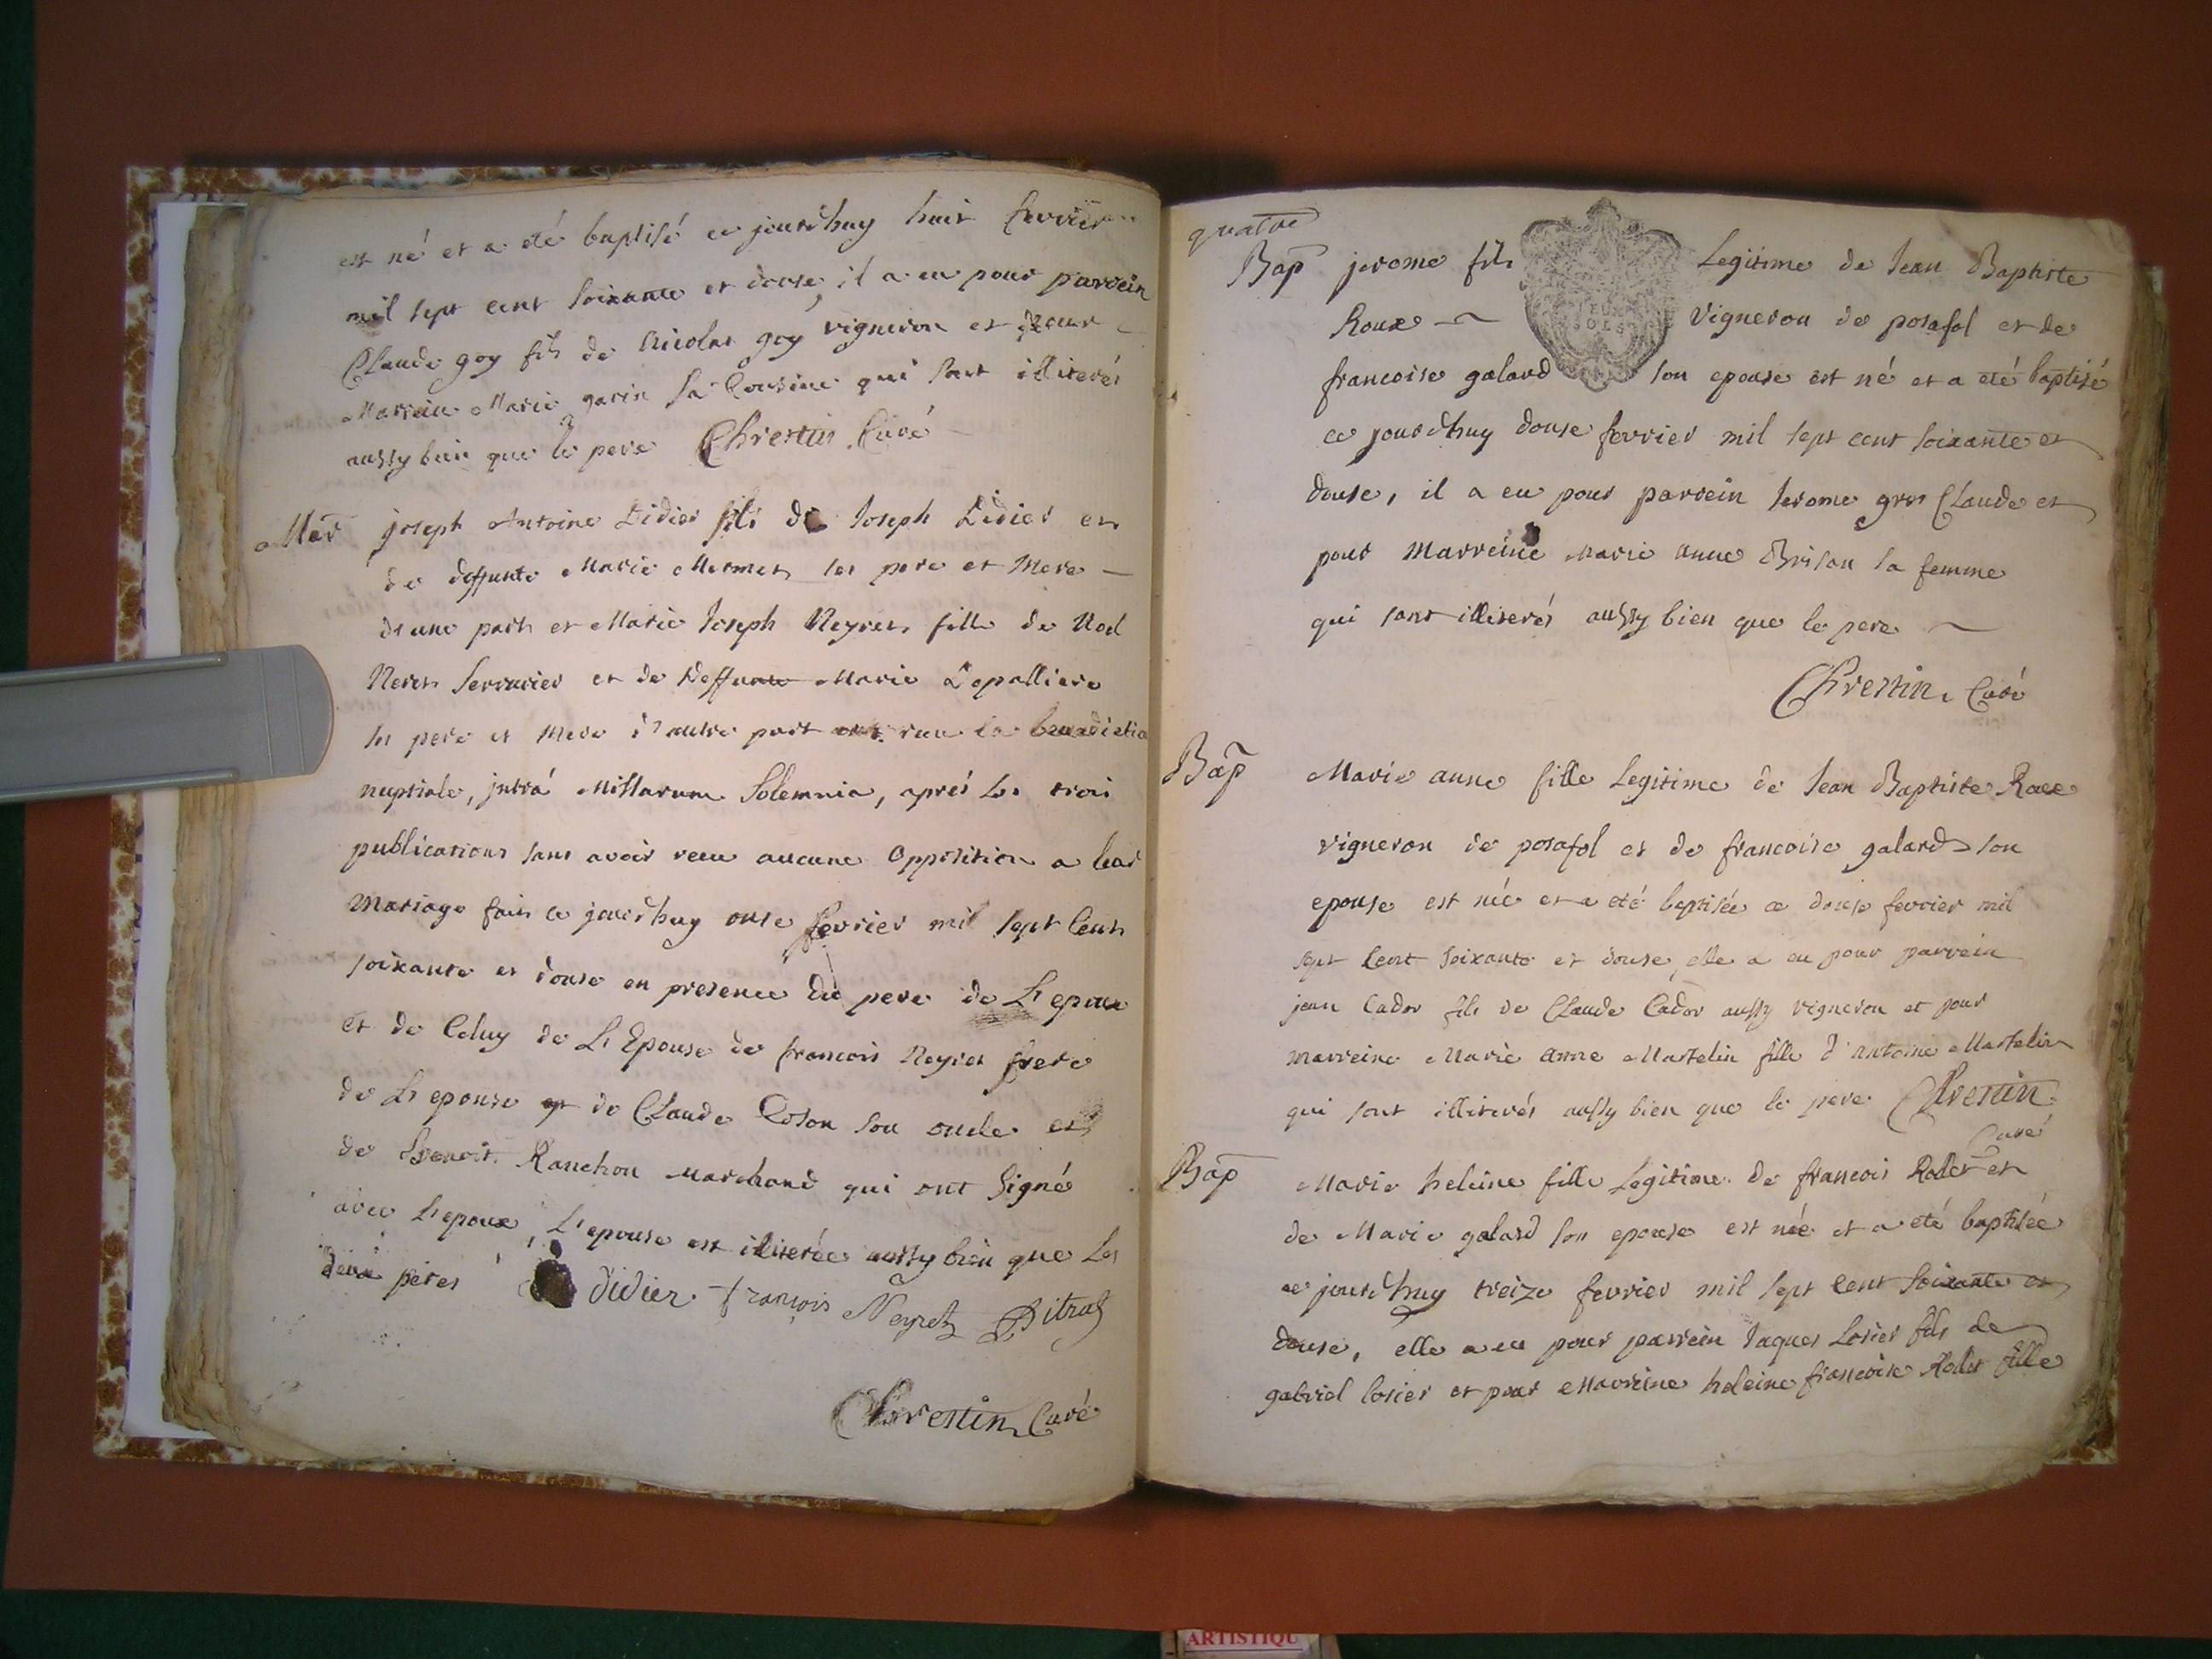 est né et a eté baptisé ce jourdhuy huit fevrier
mil sept cent soixante et douse, il a eu pour parrein
Claude goy fils de Nicolas goy vigneron et pour
Marreine Marie garin sa Cousine qui sont illiterés
aussy bien que le pere Chrestin Curé
Mar joseph Antoine Didier fils de Joseph Didier et
de deffunte Marie Mermet ses pere et Mere
d'une part et Marie Joseph Neyret fille de Noel
Neret Serrurier et de Deffunte Marie Depalliere
ses pere et Mere d'autre part ont recu la benediction
nuptiale, jntrá Missarum Solemnia, aprés les trois
publications sans avoir receu aucune Opposition a leur
Mariage fait ce jourdhuy onse fevrier mil sept Cent
soixante et douse en presence du pere de L'epoux
et de Celuy de L'Epouse de francois Neyret frere
de L'epouse et de Claude Coson son oncle et
de Benoit Ranchon Marchand qui ont Signé
avec L'epoux, L'epouse est illiterée aussy bien que Les
deux péres didier françois Neyret Pitrat
Chrestin Curé
quatre
Bap jerome fils Legitime de Jean Baptiste
Roux Vigneron de posafol et de
francoise galard son epouse est né et a eté baptisé
ce jourdhuy douse fevrier mil sept cent soixante et
douse, il a eu pour parrein Jerome gros Claude et
pour Marreine Marie anne Brison sa femme
qui sont illiterés aussy bien que le pere
Chrestin Curé
Bap Marie anne fille Legitime de Jean Baptiste Roux
vigneron de posafol et de francoise galard son
epouse est née et a eté baptisée ce douse fevrier mil
sept Cent soixante et douse, elle a eu pour parrein
jean Cador fils de Claude Cador aussy vigneron et pour
marreine Marie Anne Martelin fille d'Antoine Martelin
qui sont illiterés aussy bien que le pere Chrestin
Curé
Bap Marie heleine fille Legitime de francois Rolet et
de Marie galard son epouse est née et a eté baptisée
ce jourdhuy treize fevrier mil sept cent soixante et
douse, elle a eu pour parrein Jaques Losier fils de
gabriel losier et pour Marreine heleine francoise Rolet fille
DEUX
SOLS
ARTISTIQU